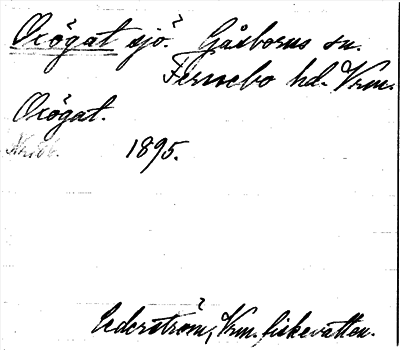 Oxögat sjö? Gåsborns sn.
Fernebo hd. Vrm.
Oxögat.
1895.
Cederström, Vrm. fiskevatten.